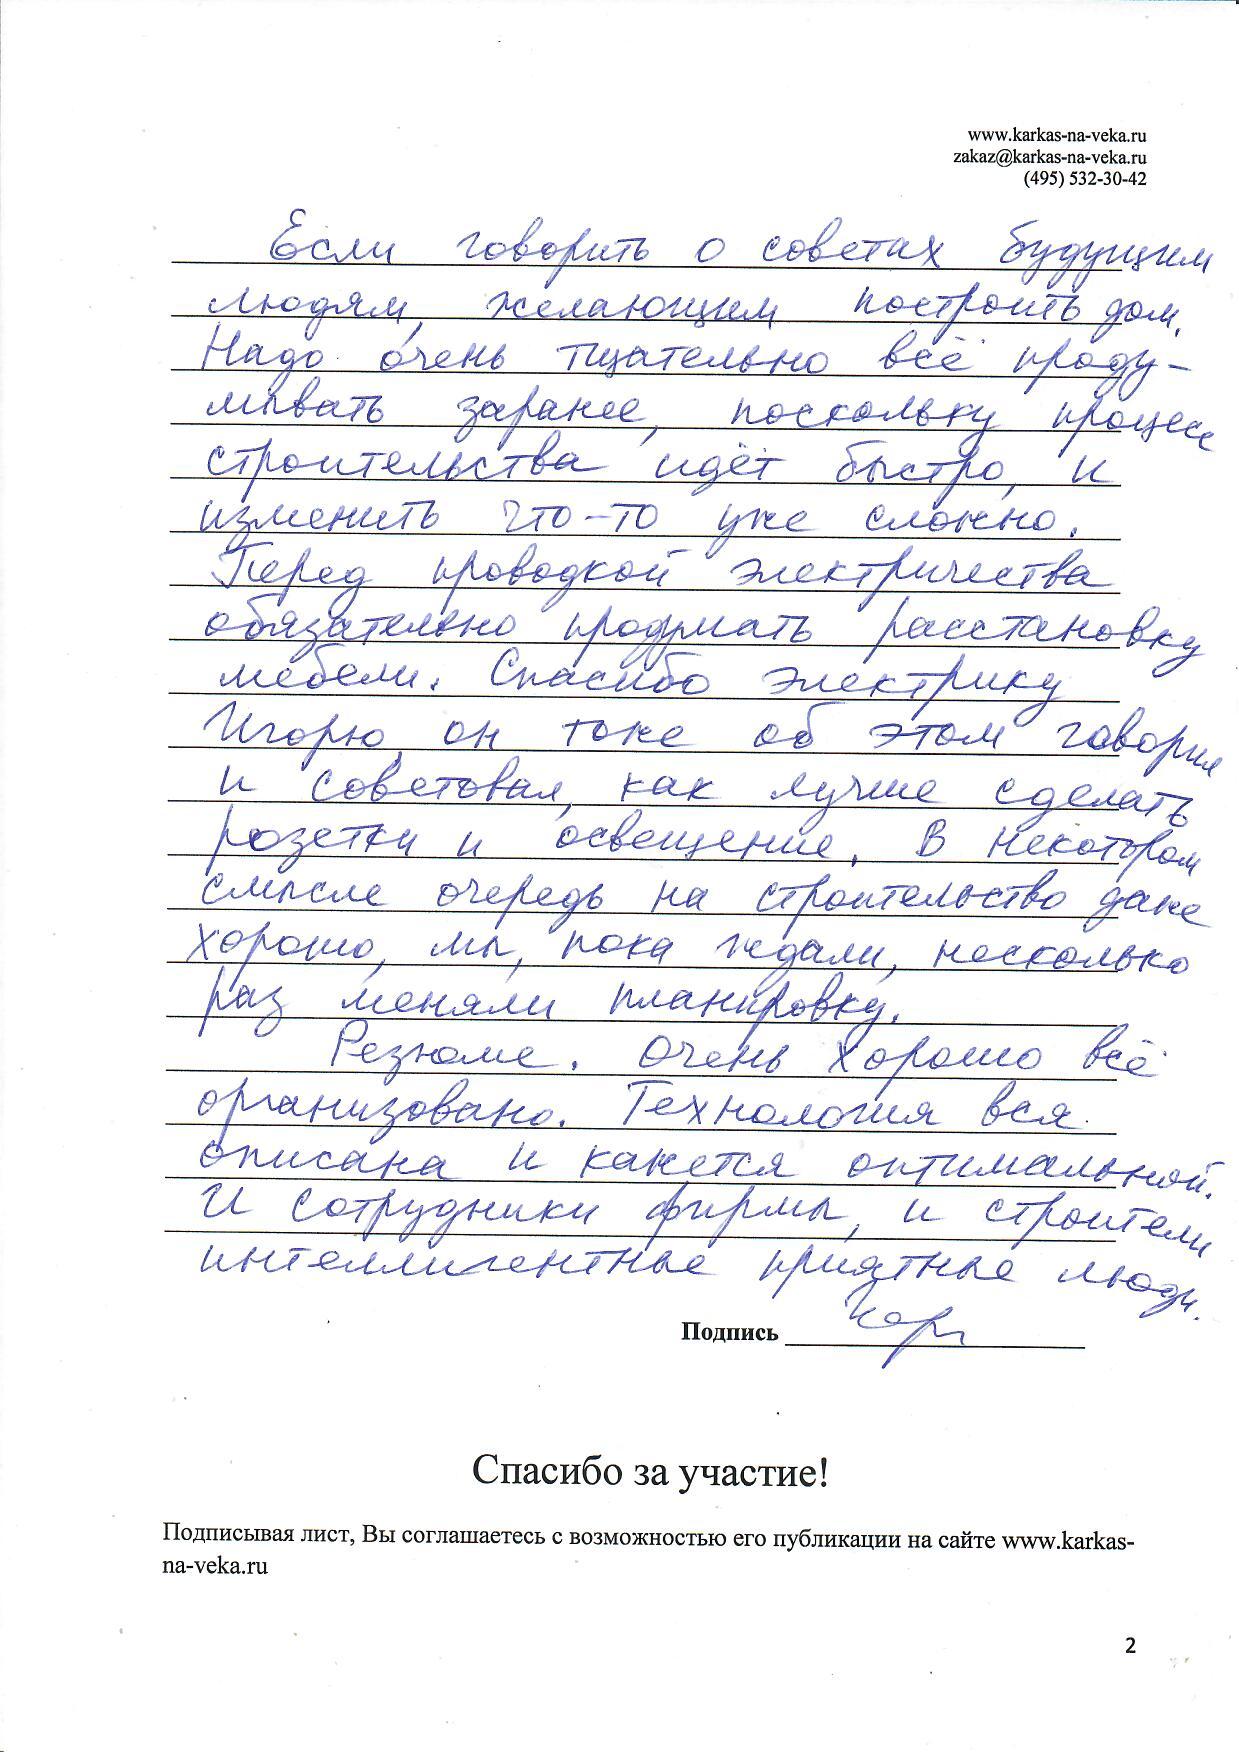 www.karkas-na-veka.ru
zakaz@karkas-na-veka.ru
(495) 532-30-42
Если говорить о советах будущим
людям, желающим построить дом.
Надо очень тщательно всё проду-
мывать заранее, поскольку процесс
строительства идёт быстро, и
изменить что-то уже сложно.
Перед проводкой электричества
обязательно продумать расстановку
мебели. Спасибо электрику
Игорю, он тоже об этом говорил
и советовал, как лучше сделать
розетки и освещение. В некотором
смысле очередь на строительство даже
хорошо, мы, пока ждали, несколько
раз меняли планировку.
Резюме. Очень хорошо всё
организовано. Технология вся
описана и кажется оптимальной.
И сотрудники фирмы, и строители
интеллигентные приятные люди.
Подпись
Спасибо за участие!
Подписывая лист, Вы соглашаетесь с возможностью его публикации на сайте www.karkas-
na-veka.ru
2